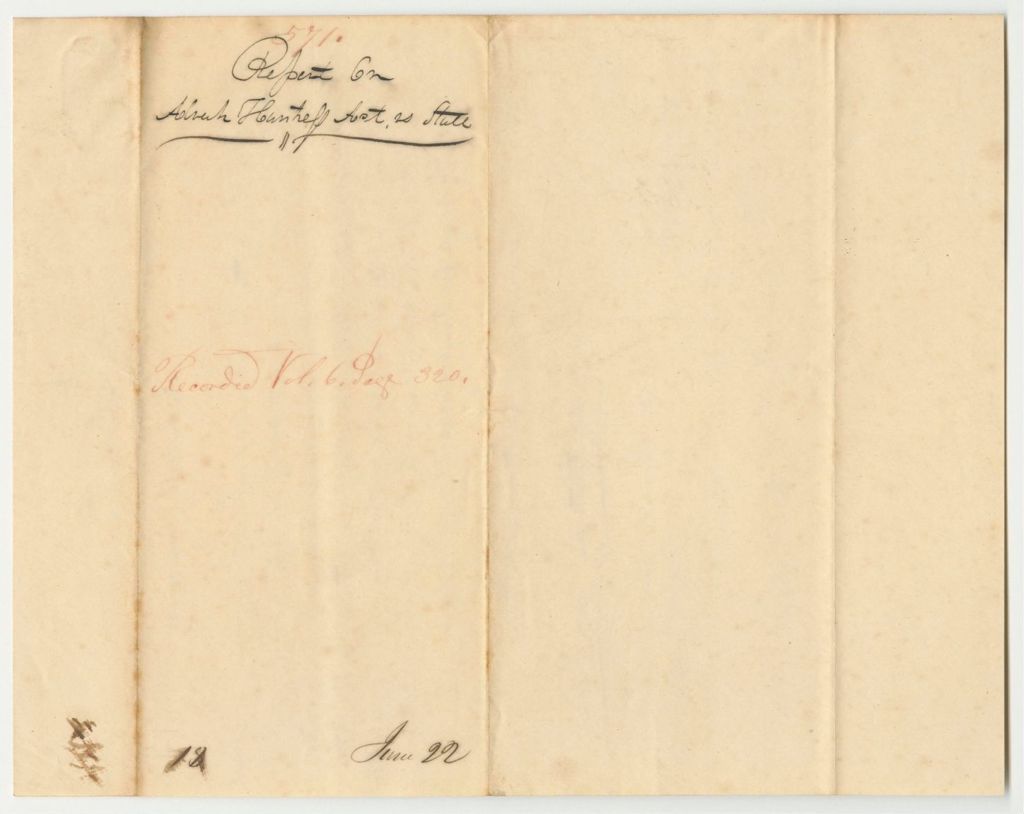 571.
Report On
Huntress Act, vs State
Recorded Vol. 6. Page 320.
18 June 22